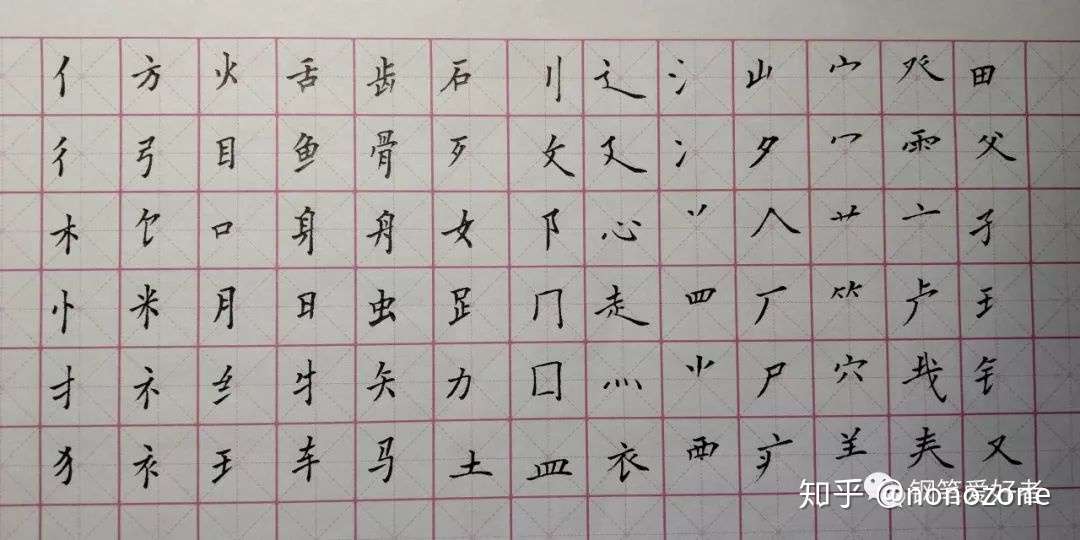 亻 方 火 舌 齿 石 刂 辶 氵 山 宀 癶 田
彳 弓 目 鱼 骨 歹 攵 廴 冫 夕 冖 ⻗ 父
木 饣 口 身 舟 女 阝 心 丷 人 艹 亠 孑
忄 米 月 日 虫 𧾷 冂 走 罒 厂 ⺮ 虍 王
扌 礻 纟 牛 矢 力 囗 灬 ⺌ 尸 穴 钅
犭 衤 王 车 马 土 皿 衣 覀 疒 𦍌 𡗗 又
知乎 @nonozone
钢笔爱好者